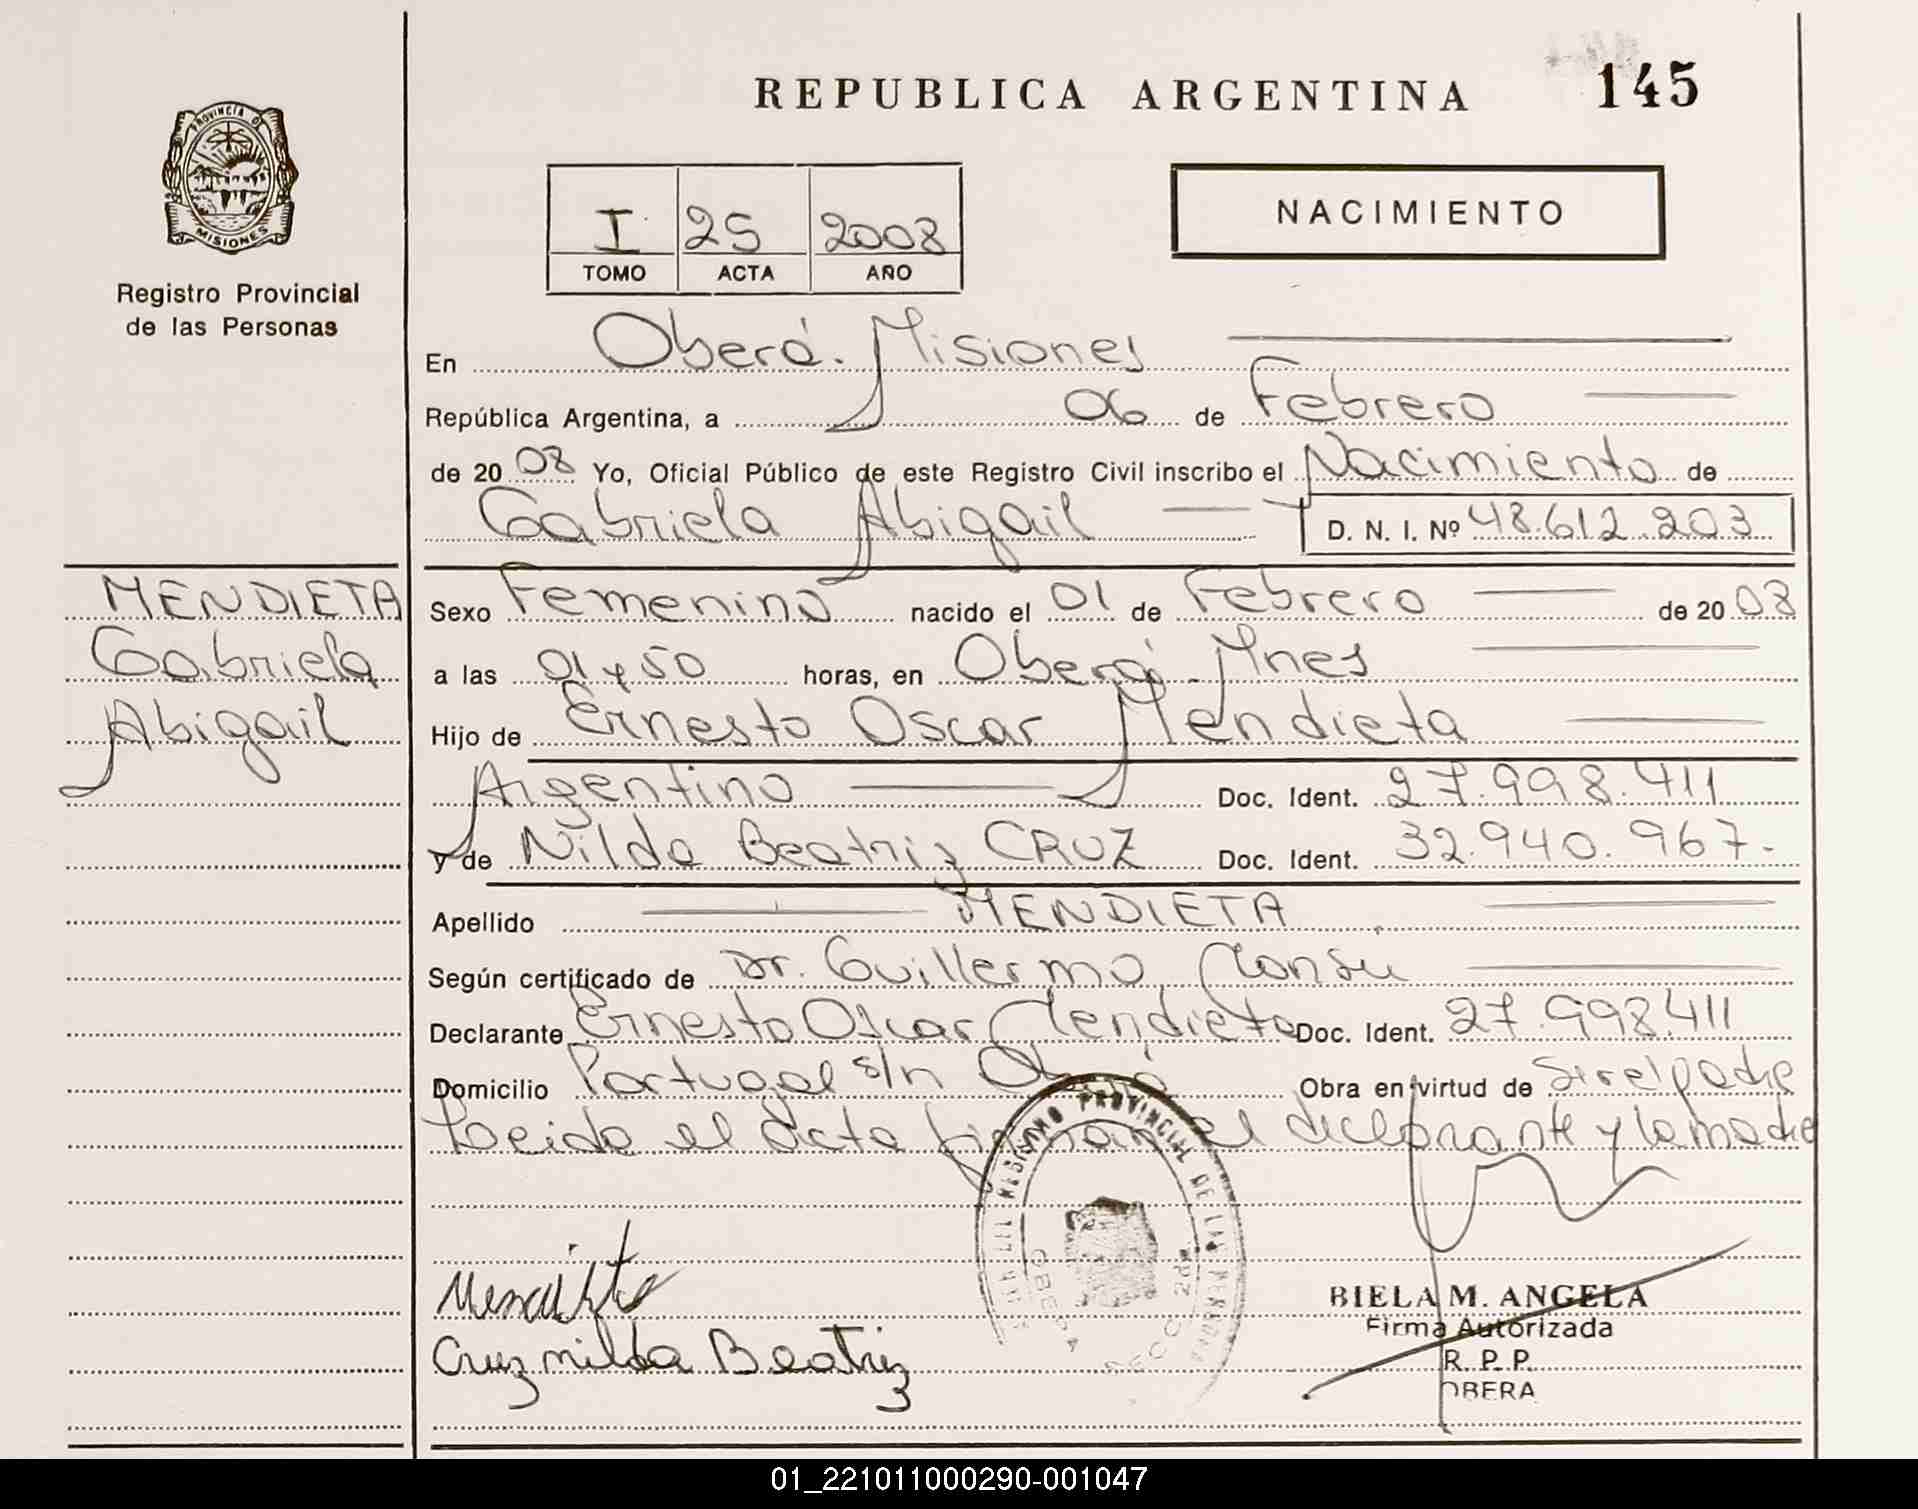 REPUBLICA ARGENTINA 145
PROVINCIA DE
MISIONES
Registro Provincial
de las Personas
I 25 2008
TOMO ACTA AÑO
NACIMIENTO
En Oberá. Misiones
República Argentina, a 06 de Febrero
de 2008 Yo, Oficial Público de este Registro Civil inscribo el Nacimiento de
Gabriela Abigail D. N. I. Nº 48.612.203
MENDIETA
Gabriela
Abigail
Sexo Femenino nacido el 01 de Febrero de 2008
a las 01 y 50 horas, en Oberá Mnes
Hijo de Ernesto Oscar Mendieta
Argentino Doc. Ident. 27.998.411
y de Nilda Beatriz CRUZ Doc. Ident. 32.940.967.
Apellido MENDIETA
Según certificado de Dr. Guillermo
Declarante Ernesto Oscar Mendieta Doc. Ident. 27.998.411
Domicilio Portugal s/n Oberá Obra en virtud de Ser el padre
Leida el acta firman el declarante y la madre
REGISTRO PROVINCIAL DE LAS PERSONAS
OBERA
Mendieta
Cruz nilda Beatriz
BIELA M. ANGELA
Firma Autorizada
R. P. P.
OBERA
01_221011000290-001047